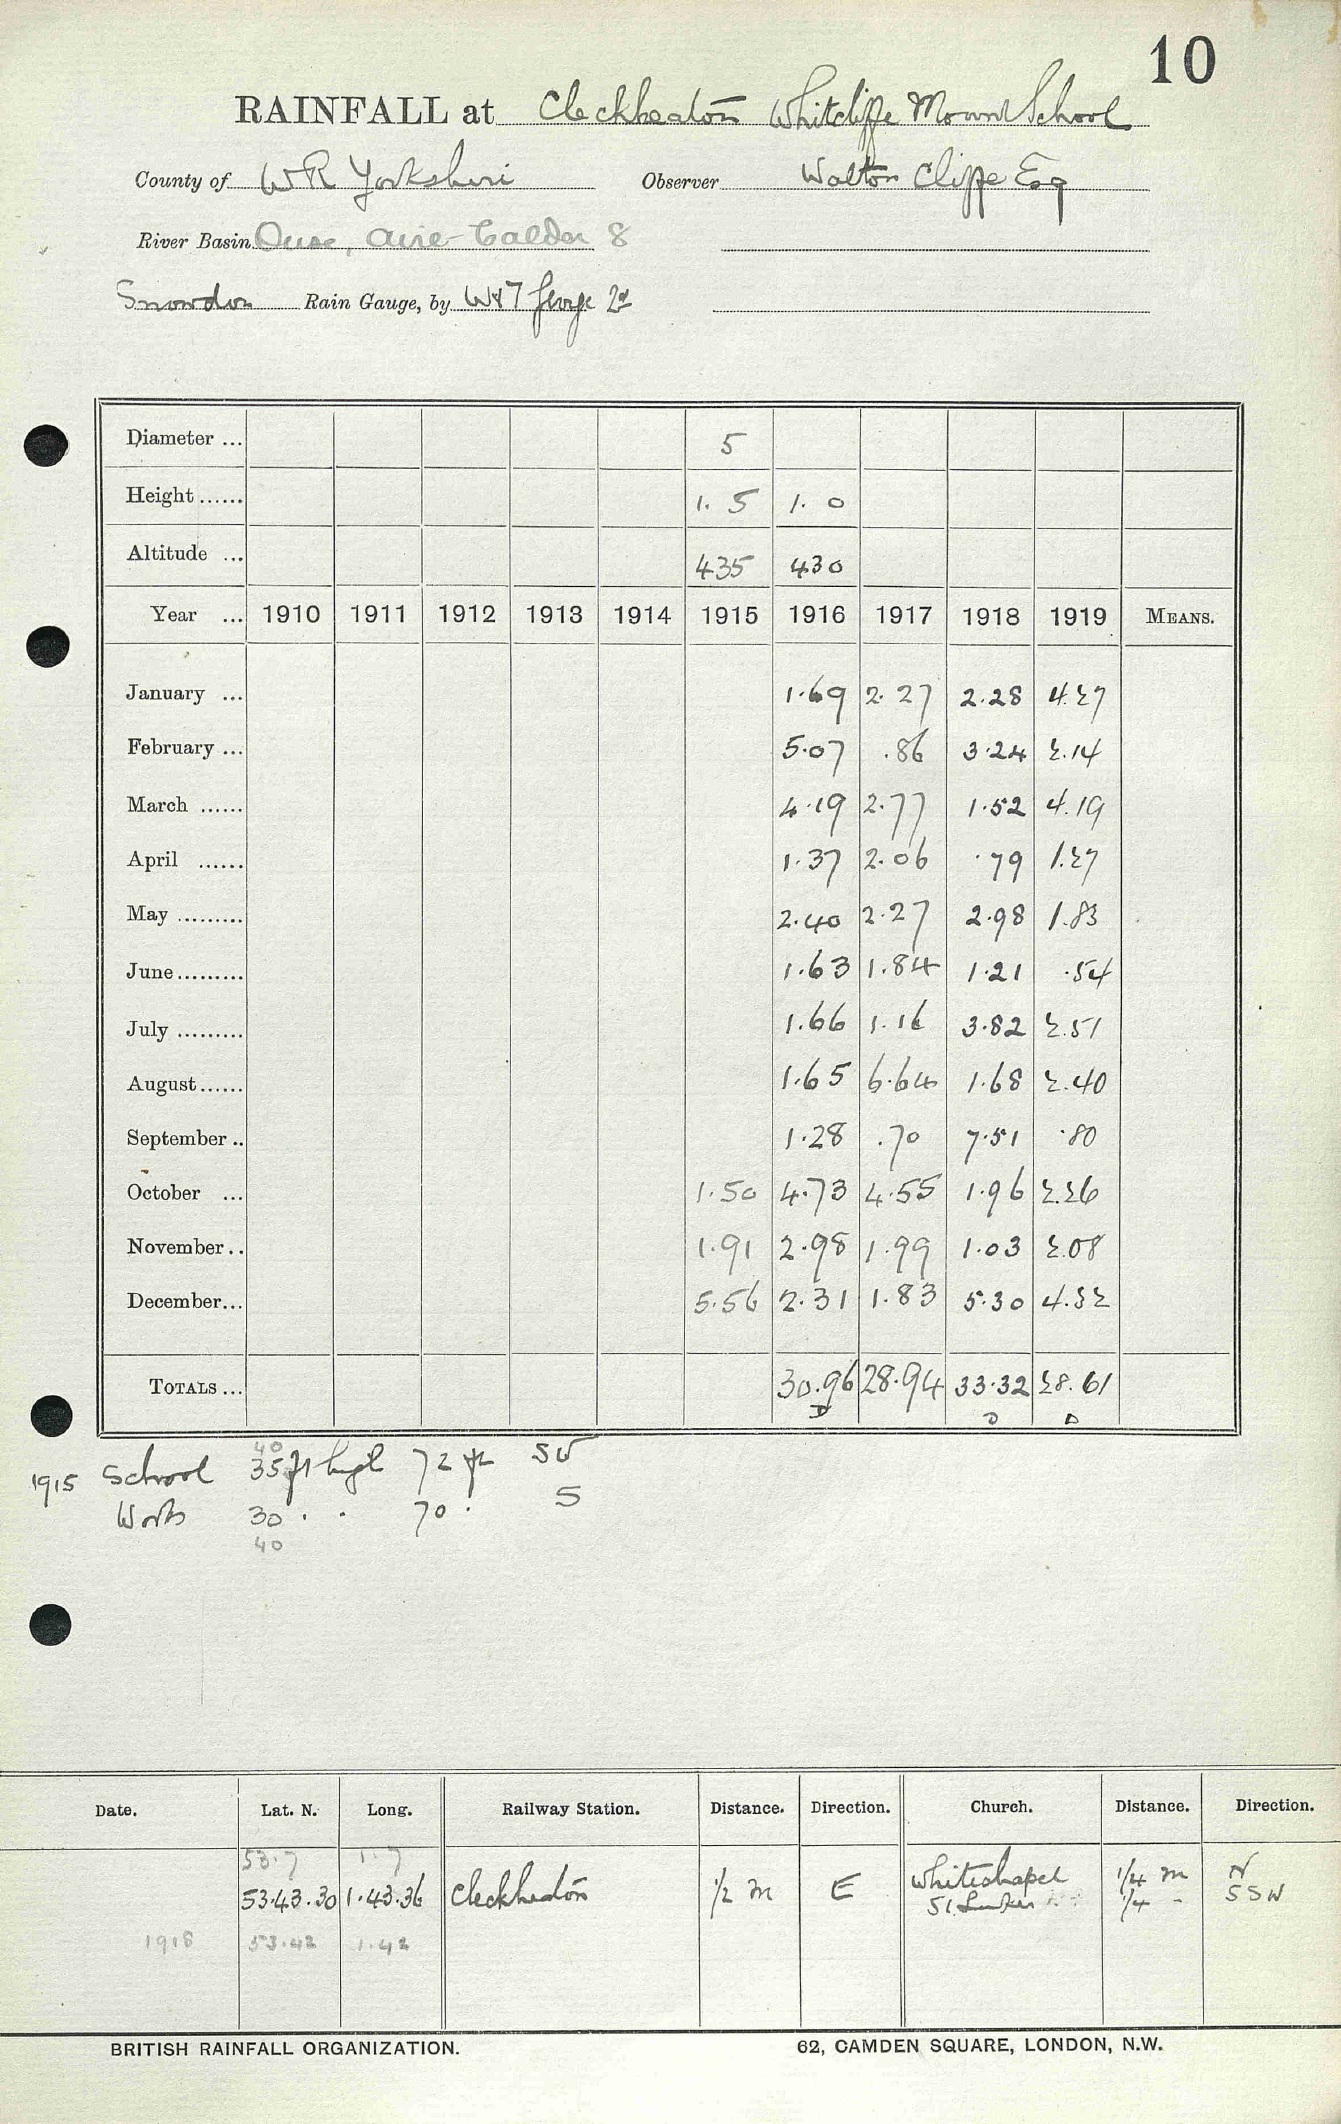 10
RAINFALL at Cleckheaton Whitcliffe Mount School
County of W R Yorkshire Observer Walton Cliffe Esq
River Basin Ouse, Aire-Calder 8
Snowdon Rain Gauge, by W&T George 2d
Diameter ... 5
Height ...... 1. 5 1. 0
Altitude ... 435 430
Year ... 1910 1911 1912 1913 1914 1915 1916 1917 1918 1919 MEANS.
January ... 1.69 2.27 2.28 4.27
February ... 5.07 .86 3.24 2.14
March ...... 4.19 2.77 1.52 4.19
April ...... 1.37 2.06 .79 1.27
May ......... 2.40 2.27 2.98 1.83
June ......... 1.63 1.84 1.21 .54
July ......... 1.66 1.16 3.82 2.51
August ...... 1.65 6.64 1.68 2.40
September .. 1.28 .70 7.51 .80
October ... 1.50 4.73 4.55 1.96 2.26
November .. 1.91 2.98 1.99 1.03 2.08
December ... 5.56 2.31 1.83 5.30 4.32
TOTALS ... 30.96 28.94 33.32 28.61
D D D
40
1915 School 35 ft high 72 ft SW
Works 30 . . 70 . S
40
Date. Lat. N. Long. Railway Station. Distance. Direction. Church. Distance. Direction.
53.7 1.7
53.43.30 1.43.36 Cleckheaton 1/2 m E Whitechapel 1/4 m N
St. Lukes 1/4 - SSW
1918 53.42 1.42
BRITISH RAINFALL ORGANIZATION. 62, CAMDEN SQUARE, LONDON, N.W.